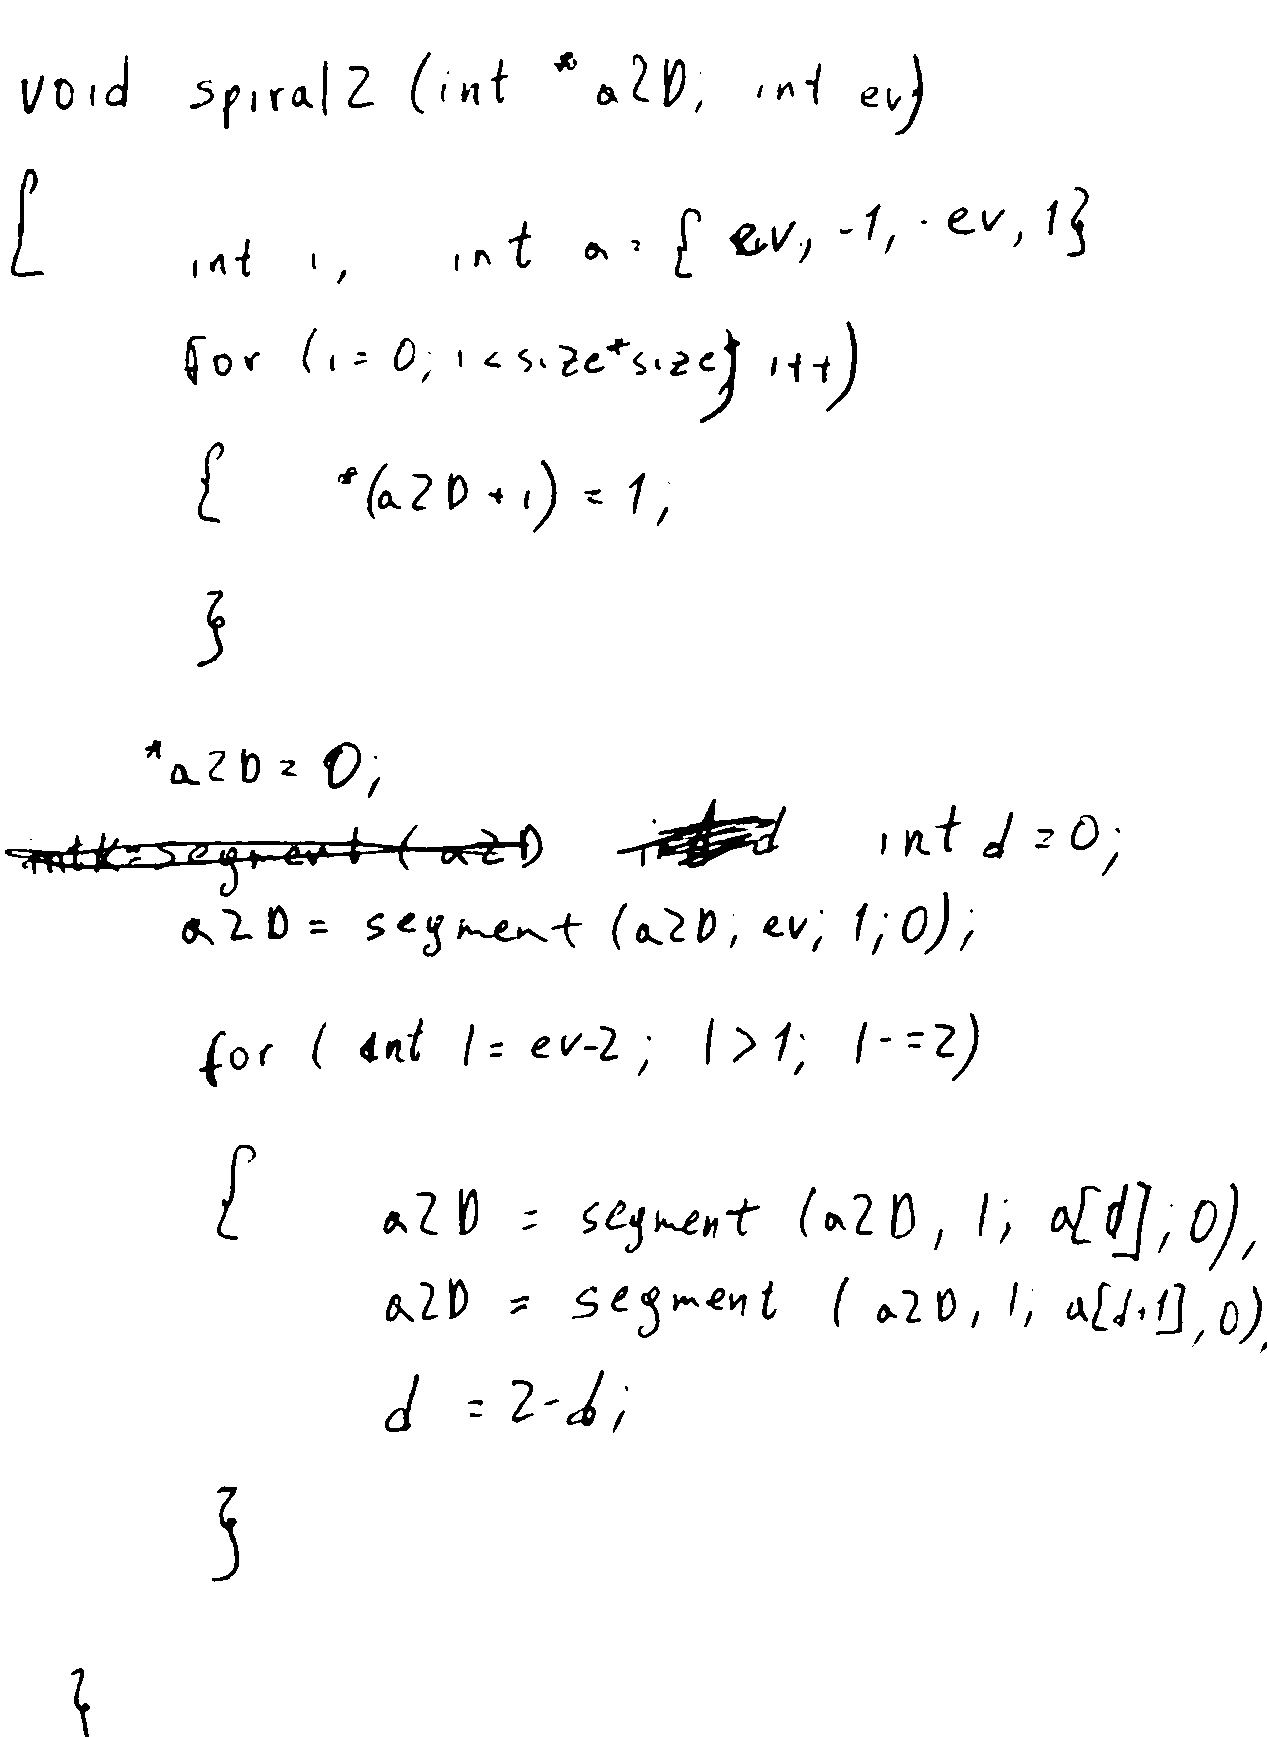 void spiral2 (int *a2D, int ev)
{
int i, int a = { ev, -1, -ev, 1}
for (i = 0; i < size*size; i++)
{ *(a2D + i) = 1;
}
*a2D = 0;
int k = segment ( a2D int d int d = 0;
a2D = segment (a2D, ev, 1, 0);
for ( int l = ev-2 ; l > 1; l -= 2)
{ a2D = segment (a2D, l, a[d], 0);
a2D = segment ( a2D, l, a[d+1], 0);
d = 2-d;
}
}